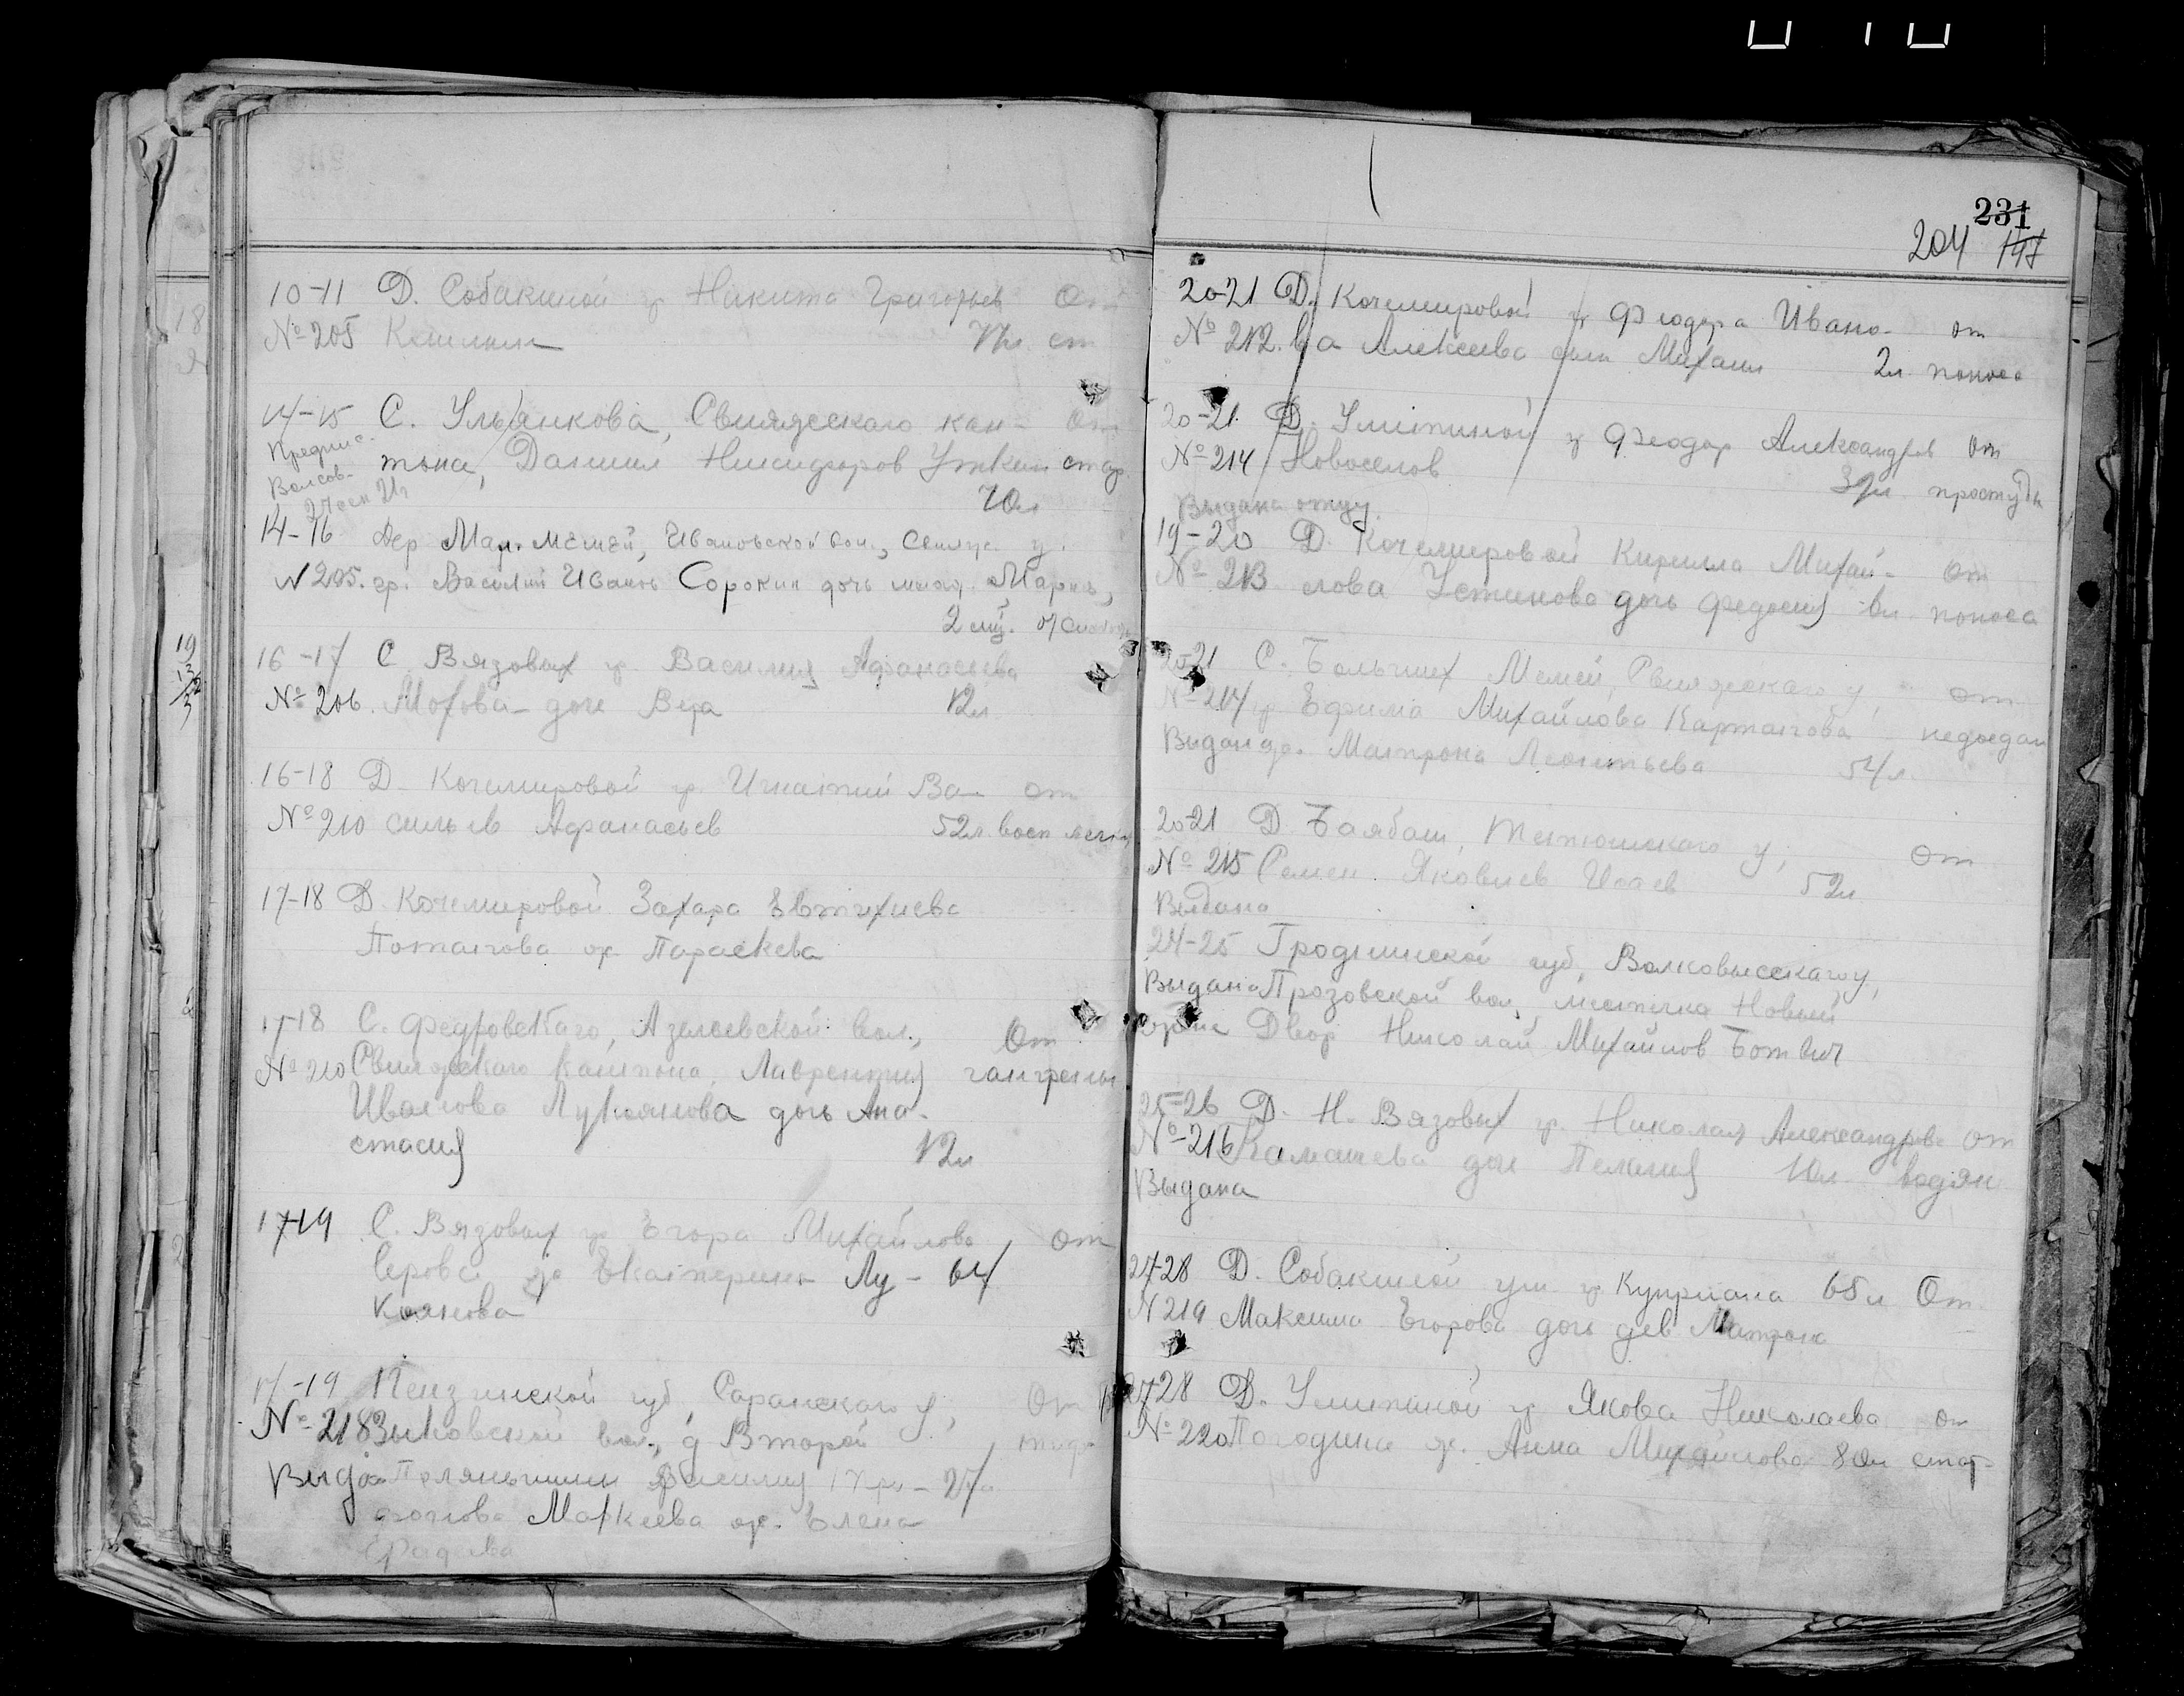 10-11 Д. Собакиной гр Никита Григорьев От
№ 205 ст
14-15 С. Ульянкова, Свияжскаго кан- От
Предпис. тона, Даниил Никифоров Уткин стар
Волсов. 70л
14-16 Дер Мал. Мемей, Ивановской вол., Свияж. у.
N 205. гр. Василий Иванов Сорокин дочь млад. Мария,
2 мц.
16-17 С. Вязовых гр. Василия Афанасьева
№ 206. Мохова - дочь Вера 12л
16-18 Д. Кочемировой гр. Игнатий Ва- от
№ 210 сильев Афанасьев 52л восп легк
17-18 Д. Кочемировой Захара Евтихиева
Потапова ж. Параскева
17-18 С. Федоровскаго, Азелеевской вол., От
№ 210 Свияжскаго Кантона, Лаврентия гангрены
Иванова Лукоянова дочь Ана-
стасия 12л
17-19 С. Вязовых гр Егора Михайлова от
Серова жа Екатерина Лу- 64
коянова
17-19 Пензинской губ, Саранскаго у, От
№ 218 Зыковской вол., д Второй
Выда Василия Три- 27л
фонова Маркеева ж. Елена
231
204
20-21 Д. Кочемировой гр Феодора Ивано- от
№ 212. ва Алексеева сын Михаил 2л поноса
20-21. Д. Улитиной гр Феодор Александров от
№ 214 Новоселов простуды
Выдана отцу.
19-20 Д. Кочемировой Кирилла Михай- От
№ 213 лова Устинова дочь Федосия поноса
20-21 С. Больших Мемей, Свияжскаго у, от
№ 214 гр Ефима Михайлова Карташова недоедан
Выдана жа. Матрона Леонтьева 54л.
20-21 Д. Баябаш, Тетюшскаго у, От
№ 215 Семен Яковлев Исаев 52л
Выдана
24-25 Гродненской губ, Волковысскаго у,
Выдана Прозовской вол, местечка Новый
Двор Николай Михайлов Ботвич
25-26 Д. Н. Вязовых гр. Николая Александрова от
№ 216 дочь Пелагия водян
Выдана
27-28 Д. Собакиной ум. гр Куприана 65л От.
N 219 Максима Егорова дочь дев. Матрона
27-28 Д. Улитиной гр Якова Николаева от
№ 220 Погодина ж. Анна Михайлова 80л стар